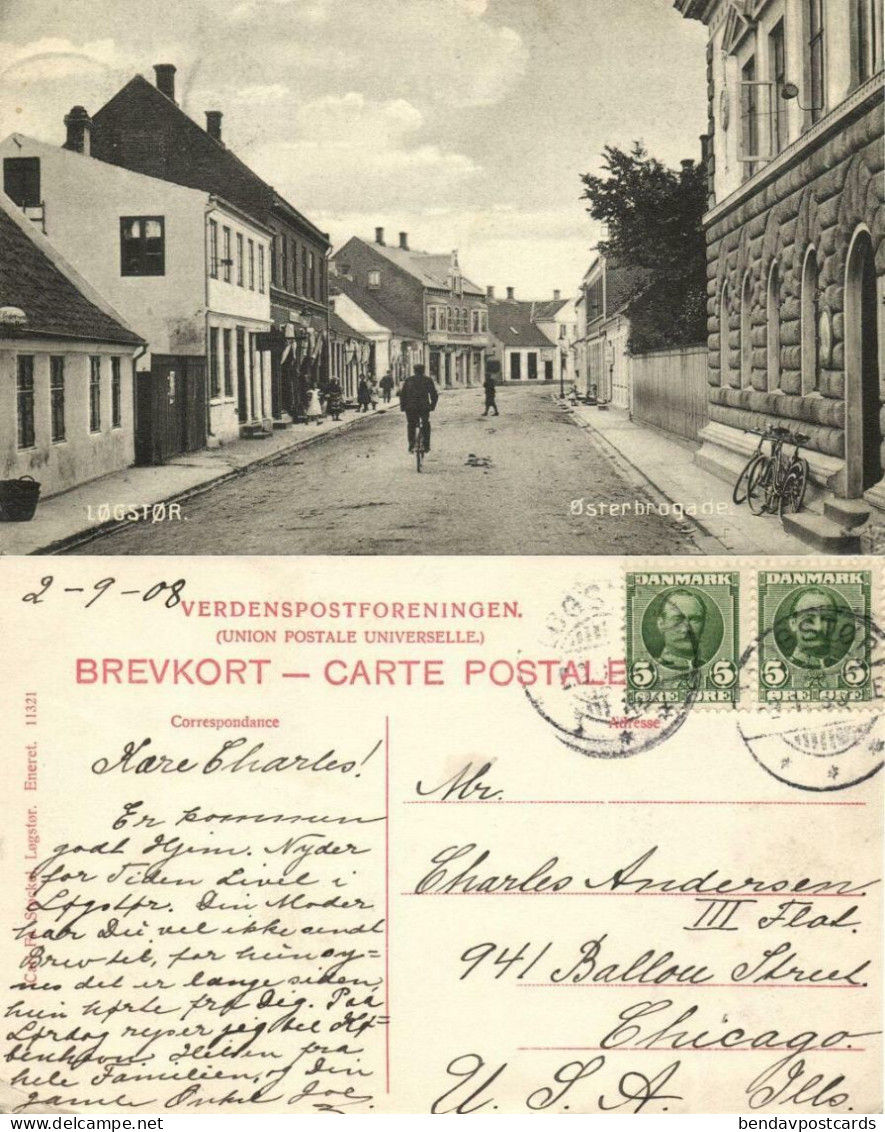 LØGSTØR.
Østerbrogade.
2-9-08
VERDENSPOSTFORENINGEN.
(UNION POSTALE UNIVERSELLE.)
BREVKORT — CARTE POSTALE
DANMARK
5 5
ØRE ØRE
DANMARK
5 5
ØRE ØRE
Correspondance
Adresse
Eneret. 11321
Løgstør.
Kære Charles!
Er kommen
godt Hjem. Nyder
for Tiden Livet i
Løgstør. Din Moder
har Du vel ikke sendt
Brev til, for hun sy=
nes det er længe siden,
hun hørte fra Dig. Paa
Lørdag rejser jeg til Kø=
benhavn. Hilsen fra
hele Familien, og Din
gamle Onkel Joe
Mr.
Charles Andersen
III Flat.
941 Ballou Street
Chicago.
U. S. A. Ills.
bendavpostcards